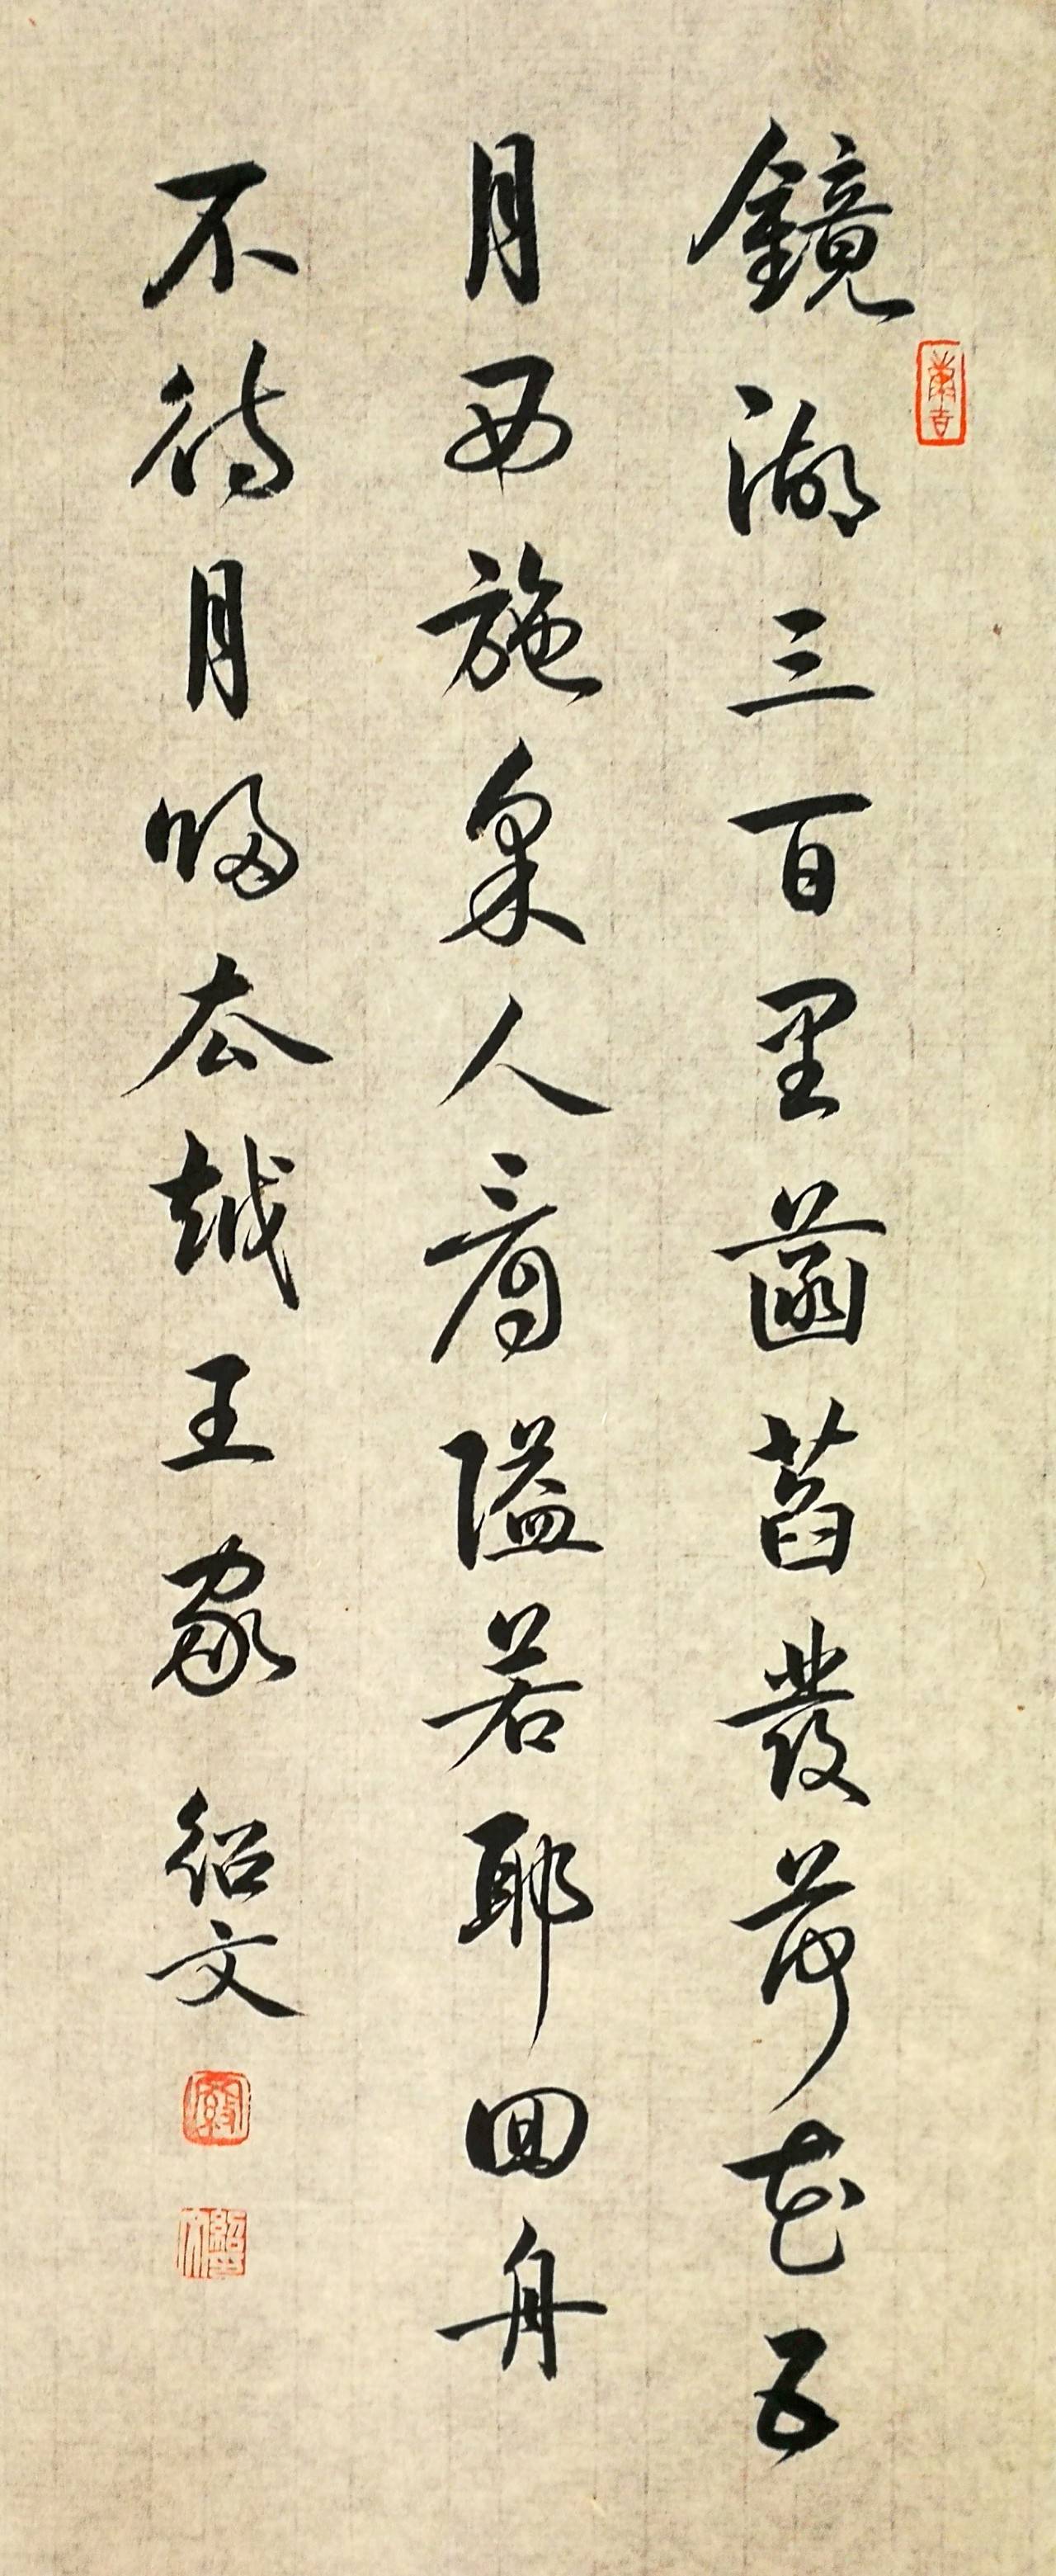 鏡湖三百里菡萏發荷花五
月西施采人看隘若耶回舟
不待月歸去越王家
紹文